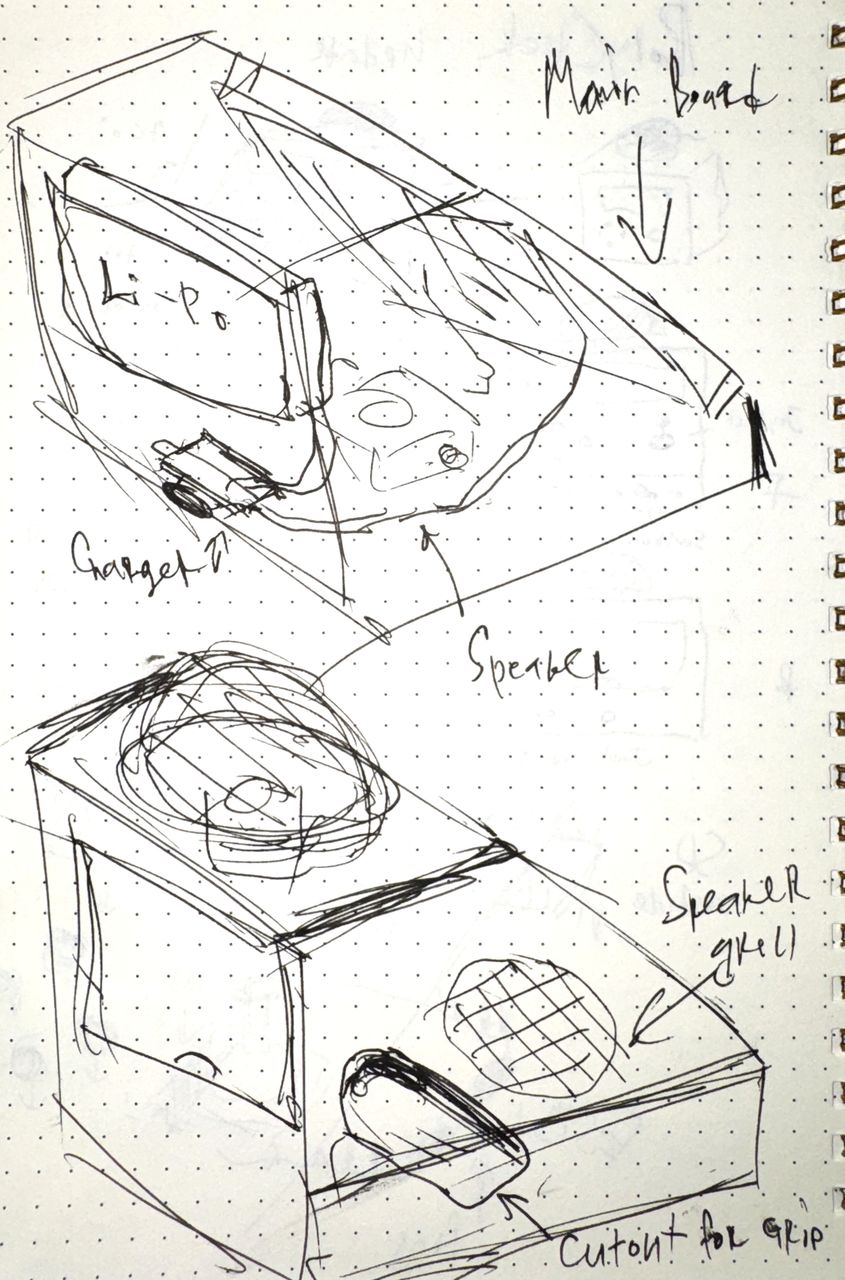 Main Board
Li-Po
Charger
Speaker
Speaker
grill
Cutout for Grip